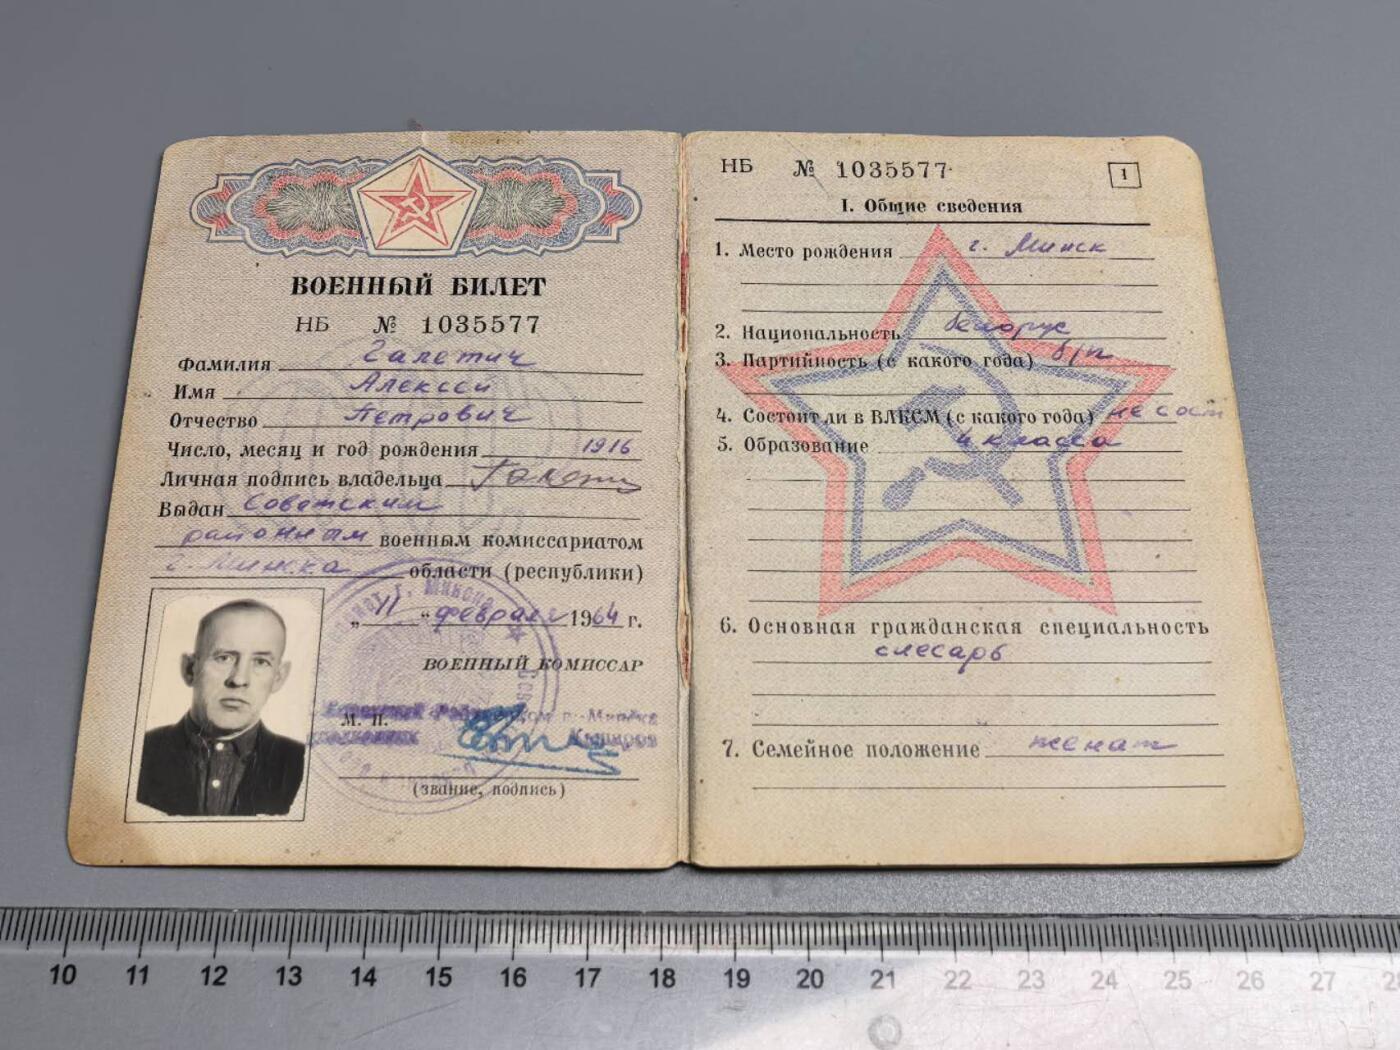 ВОЕННЫЙ БИЛЕТ
НБ № 1035577
Фамилия Галетич
Имя Алексей
Отчество Петрович
Число, месяц и год рождения 1916
Личная подпись владельца
Выдан Советским
районным военным комиссариатом
г. Минска области (республики)
„11“ февраля 1964 г.
ВОЕННЫЙ КОМИССАР
М. П.
(звание, подпись)
НБ № 1035577
1
I. Общие сведения
1. Место рождения г. Минск
2. Национальность белорус
3. Партийность (с какого года) б/п
4. Состоит ли в ВЛКСМ (с какого года) не сост
5. Образование 4 класса
6. Основная гражданская специальность
слесарь
7. Семейное положение женат
10 11 12 13 14 15 16 17 18 19 20 21 22 23 24 25 26 27